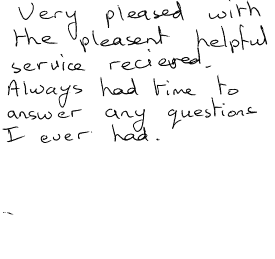 Very pleased with
the pleasent helpful
service recieved.
Always had time to
answer any questions
I ever had.